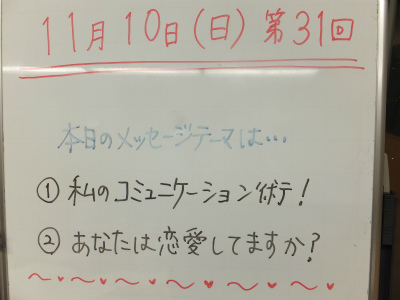 11月10日(日) 第31回
本日のメッセージテーマは…
① 私のコミュニケーション術！
② あなたは恋愛してますか？